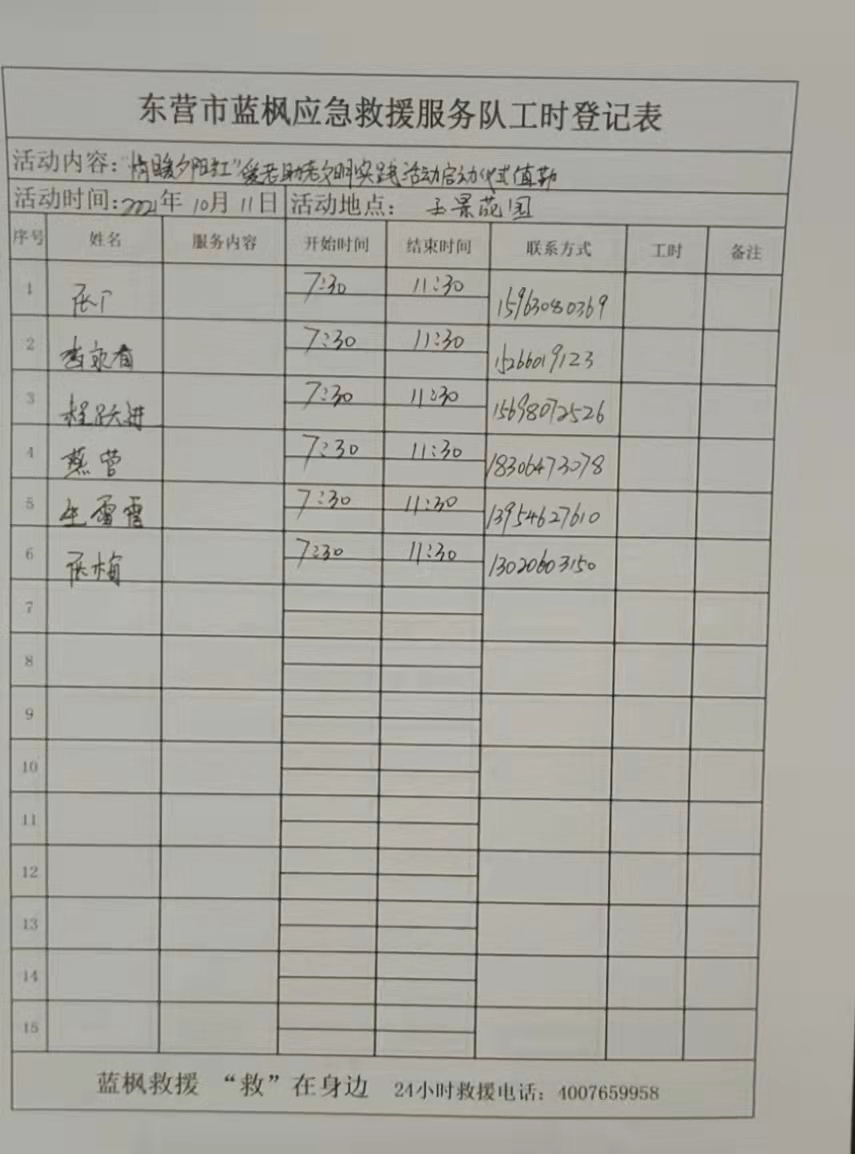 东营市蓝枫应急救援服务队工时登记表
活动内容：“情暖夕阳红”爱老助老文明实践活动启动仪式值勤
活动时间：2021年10月11日 活动地点： 玉景花园
序号 姓名 服务内容 开始时间 结束时间 联系方式 工时 备注
1 张广 7:30 11:30 15963080369
2 7:30 11:30 15266019123
3 程跃进 7:30 11:30 15698072526
4 燕营 7:30 11:30 18306473078
5 生雷雷 7:30 11:30 13954627610
6 张梅 7:30 11:30 13020603150
7
8
9
10
11
12
13
14
15
蓝枫救援 “救”在身边 24小时救援电话：4007659958